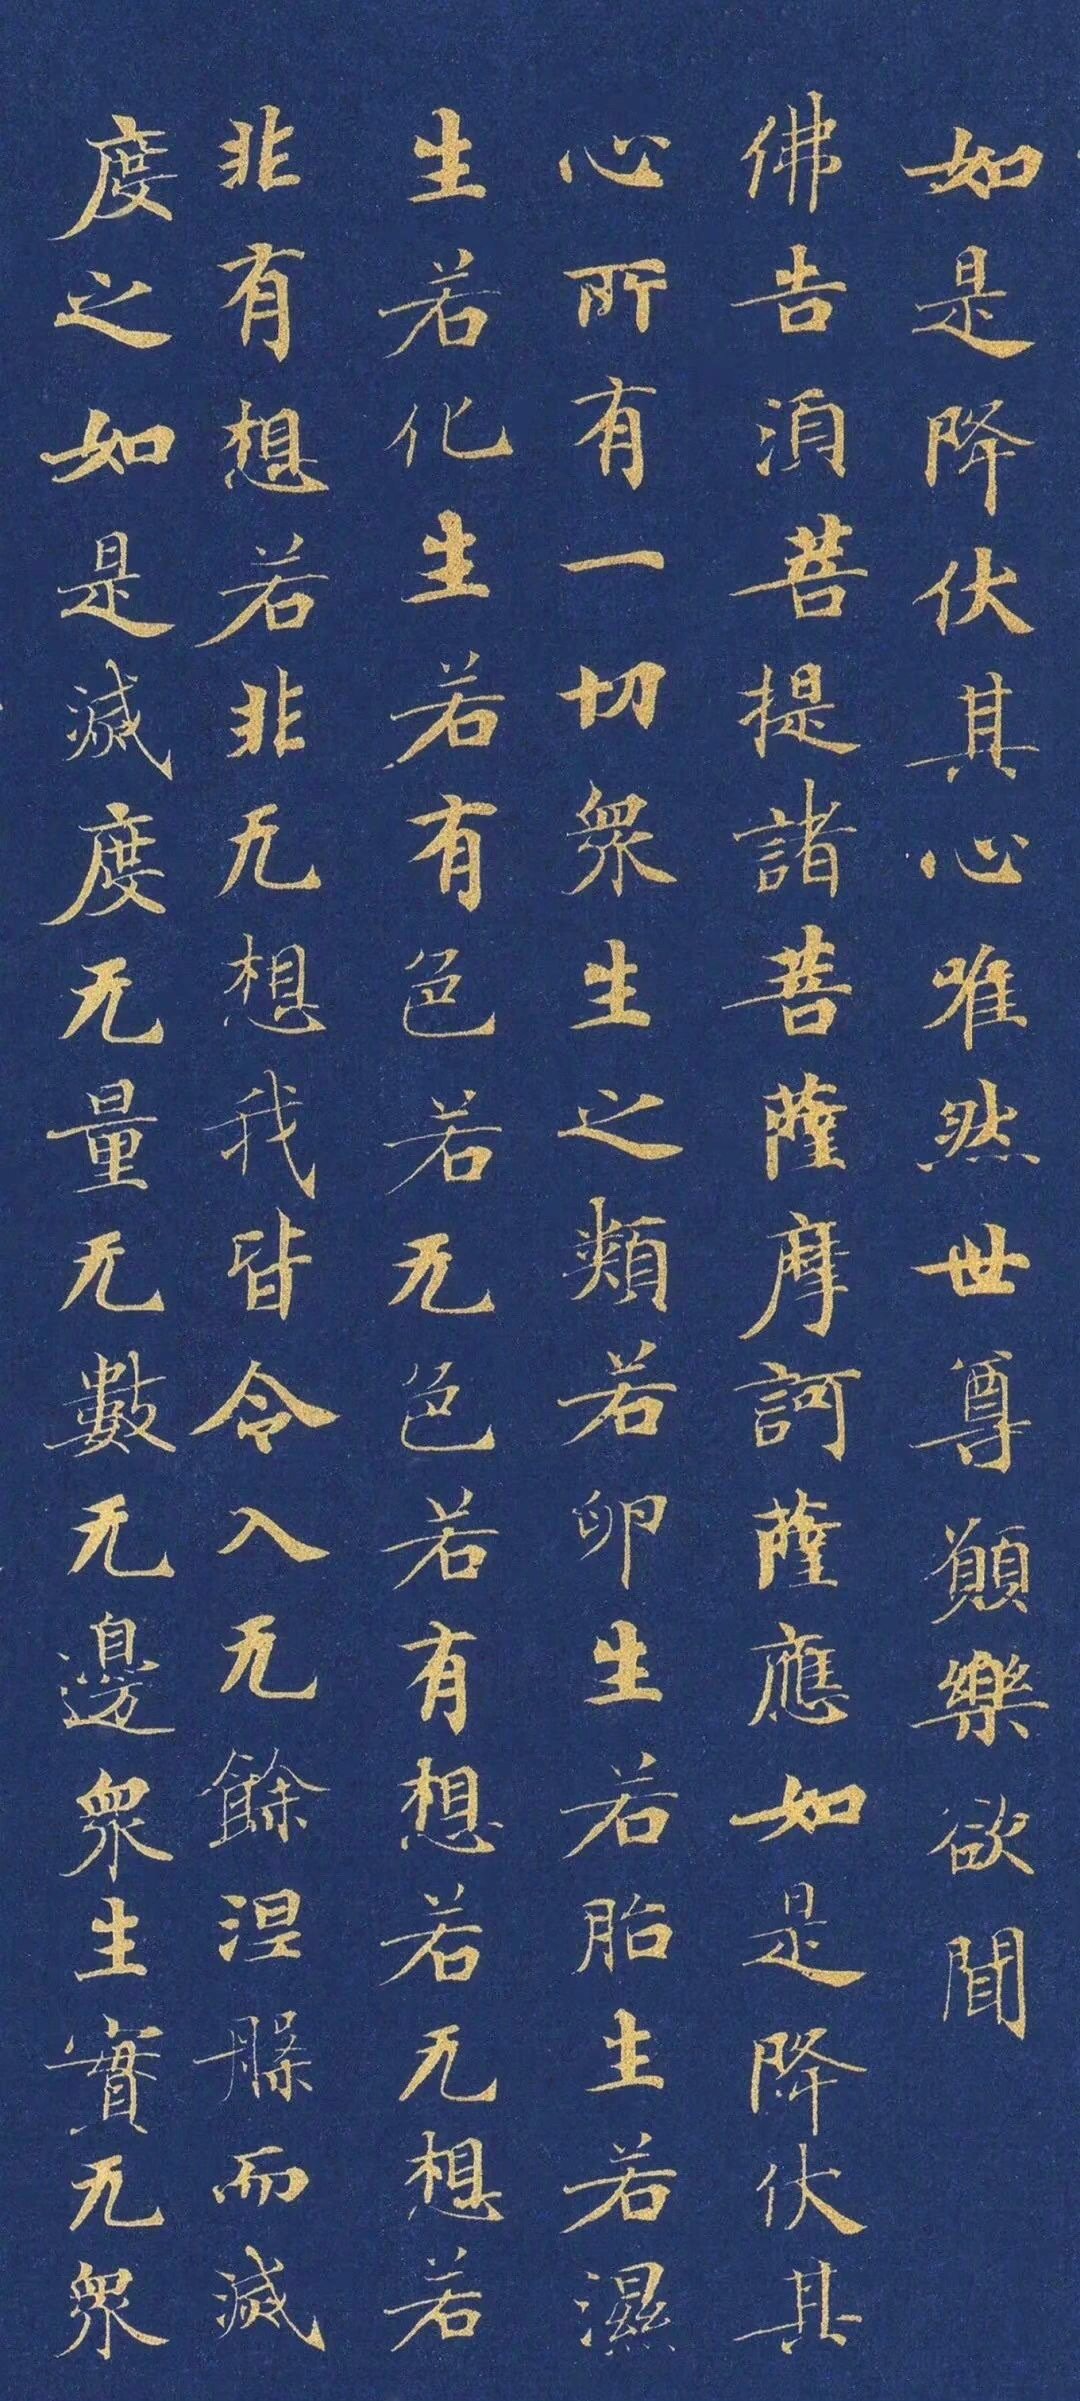 如是降伏其心唯然世尊願樂欲聞
佛告湏菩提諸菩薩摩訶薩應如是降伏其
心所有一切衆生之類若卵生若胎生若濕
生若化生若有色若无色若有想若无想若
非有想若非无想我皆令入无餘涅槃而滅
度之如是滅度无量无數无邊衆生實无衆